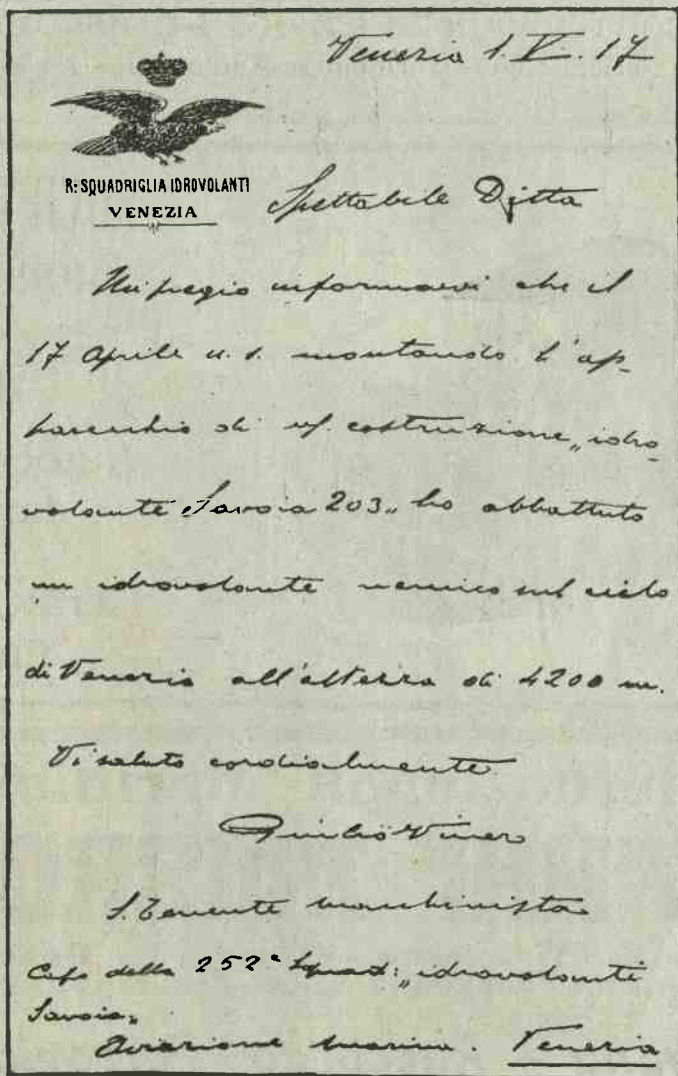 Venezia 1. V. 17
R: SQUADRIGLIA IDROVOLANTI
VENEZIA
Spettabile Ditta
Mi pregio informarvi che il
17 Aprile u. s. montando l'ap-
parecchio di vs. costruzione „idro-
volante Savoia 203„ ho abbattuto
un idrovolante nemico sul cielo
di Venezia all'altezza di 4200 m.
Vi saluto cordialmente
Giulio
S. Tenente macchinista
Capo della 252ª Squad: „idrovolanti
Savoia„
Aviazione Marina. Venezia